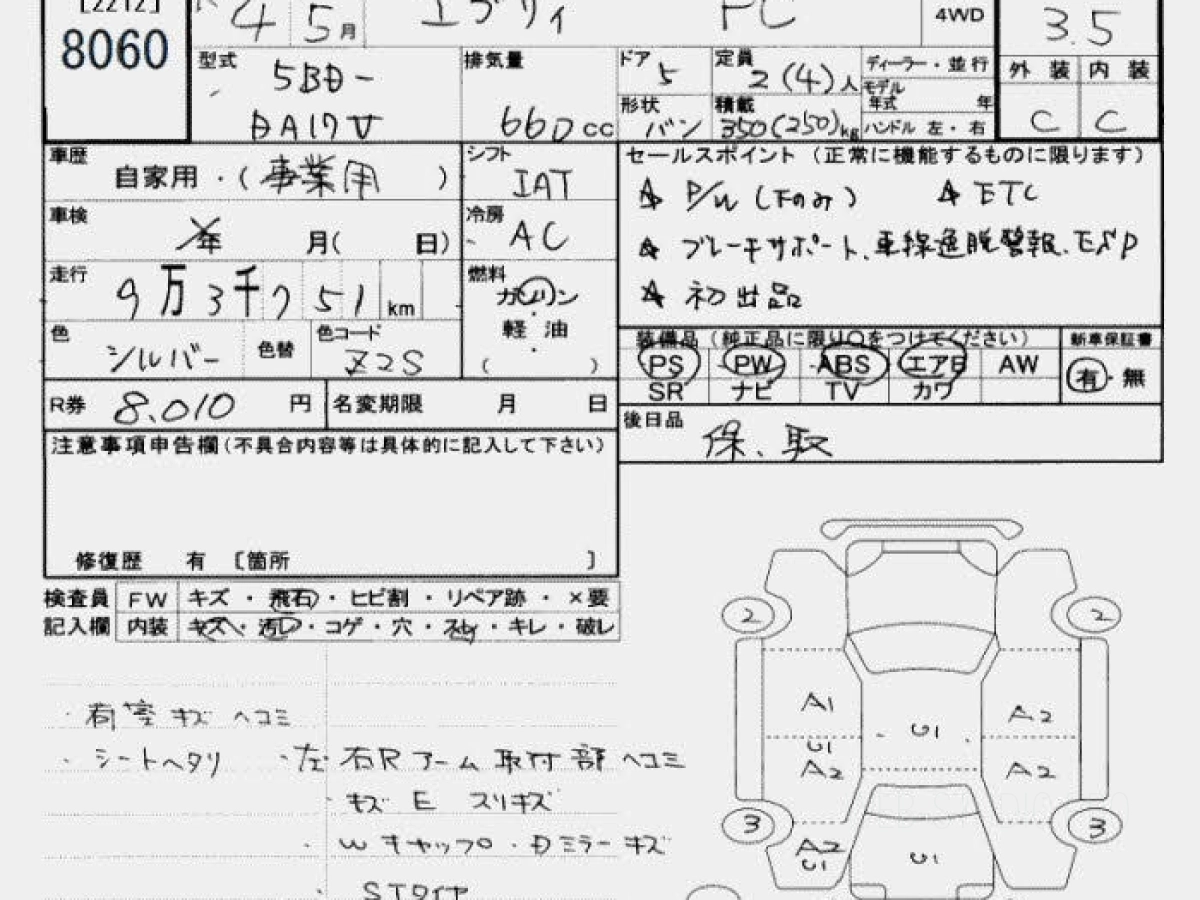 [2212]
8060
4 5月 エブリィ PC 4WD 3.5
型式 5BD-
DA17V
排気量 660 cc
ドア 5
定員 2(4)人
形状 バン
積載 350(250)kg
ディーラー・並行
モデル年式 年
ハンドル 左・右
外装 内装
C C
車歴 自家用・(事業用)
シフト IAT
車検 年 月( 日)
冷房 AC
走行 9万3千751km
燃料 ガソリン
軽油
( )
色 シルバー 色替 色コード Z2S
R券 8,010 円 名変期限 月 日
セールスポイント(正常に機能するものに限ります)
P/W(下のみ) ETC
ブレーキサポート、車線逸脱警報、ESP
初出品
装備品(純正品に限り○をつけてください) 新車保証書
PS PW ABS エアB AW 有・無
SR ナビ TV カワ
後日品 保、取
注意事項申告欄(不具合内容等は具体的に記入して下さい)
修復歴 有 [箇所 ]
検査員 FW キズ・飛石・ヒビ割・リペア跡・×要
記入欄 内装 キズ・汚レ・コゲ・穴・スレ・キレ・破レ
・荷室キズ ヘコミ
・シートヘタリ ・左右Rアーム取付部ヘコミ
・キズE スリキズ
・Wキャップ・Dミラーキズ
・STタイヤ
2 2
A1 U1 A2
U1
A2 A2
3 3
A2
U1 U1